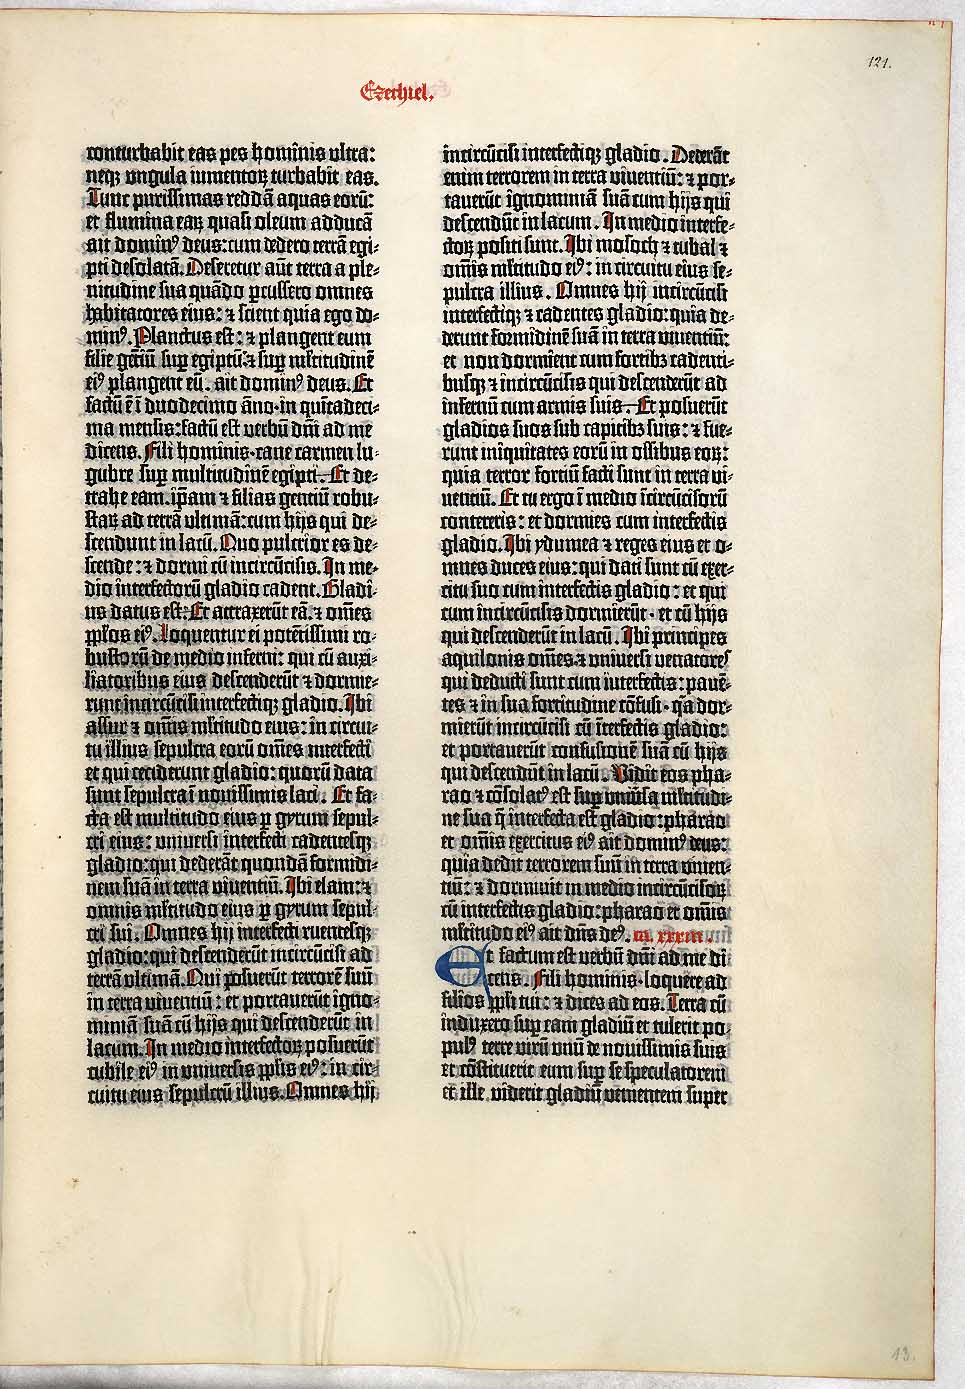 121.
Ezechiel.
conturbabit eas pes hominis ultra:
neqꝫ ungula iumentoꝝ turbabit eas.
Tunc purissimas reddā aquas eorū:
et flumina eaꝝ quasi oleum adducā
ait dominꝰ deus: cum dedero terrā egi-
pti desolatā. Deseretur aūt terra a ple-
nitudine sua quādo ꝑcussero omnes
habitatores eius: ⁊ scient quia ego do-
minꝰ. Planctus est: ⁊ plangent eum
filie gētiū suꝑ egiptū: ⁊ suꝑ mℓtitudinē
eiꝰ plangent eū. ait dominꝰ deus. Et
factū ē ī duodecimo āno·in quītadeci-
ma mensis: factū est verbū dn̄i ad me
dicens. Fili hominis·cane carmen lu-
gubre suꝑ multitudinē egipti. Et de-
trahe eam. ip̄am ⁊ filias gentiū robu-
staꝝ ad terrā ultimā: cum hijs qui de-
scendunt in lacū. Quo pulcrior es de-
scende: ⁊ dormi cū incircūcisis. In me-
dio interfectorū gladio cadent. Gladi-
us datus est: Et attraxerūt eā. ⁊ om̄es
pp̄los eiꝰ. Loquentur ei potētissimi ro-
bustorū de medio inferni: qui cū auxi-
liatoribus eius descenderūt ⁊ dormie-
runt incircūcisi interfectiqꝫ gladio. Ibi
assur ⁊ om̄is mℓtitudo eius: in circui-
tu illius sepulcra eorū om̄es interfecti
et qui ceciderunt gladio: quorū data
sunt sepulcra ī novissimis laci. Et fa-
cta est multitudo eius ꝑ gyrum sepul-
cri eius: universi interfecti cadentesqꝫ
gladio: qui dederāt quondā formidi-
nem suā in terra viventiū. Ibi elam: ⁊
omnis mℓtitudo eius ꝑ gyrum sepul-
cri sui. Omnes hij interfecti ruentesqꝫ
gladio: qui descenderūt incircūcisi ad
terrā ultimā. Qui posuerūt terrorē suū
in terra viventiū: et portaverūt igno-
miniā suā cū hijs qui descenderūt in
lacum. In medio interfectoꝝ posuerūt
cubile eiꝰ in universis pp̄lis eiꝰ: in cir-
cuitu eius sepulcrū illius. Omnes hij
incircūcisi interfectiqꝫ gladio. Dederāt
enim terrorem in terra viventiū: ⁊ por-
taverūt ignominiā suā cum hijs qui
descendūt in lacum. In medio interfe-
ctoꝝ positi sunt. Ibi mosoch ⁊ tubal ⁊
om̄is mℓtitudo eiꝰ: in circuitu eius se-
pulcra illius. Omnes hij incircūcisi
interfectiqꝫ ⁊ cadentes gladio: quia de-
derunt formidinē suā in terra viventiū:
et non dormient cum fortibꝫ cadenti-
busqꝫ ⁊ incircūcisis qui descenderūt ad
infernū cum armis suis. Et posuerūt
gladios suos sub capitibꝫ suis: ⁊ fue-
runt iniquitates eorū in ossibus eoꝝ:
quia terror fortiū facti sunt in terra vi-
ventiū. Et tu ergo ī medio īcircūcisorū
contereris: et dormies cum interfectis
gladio. Ibi ydumea ⁊ reges eius et o-
mnes duces eius: qui dati sunt cū exer-
citu suo cum interfectis gladio: et qui
cum incircūcisis dormierūt· et cū hijs
qui descenderūt in lacū. Ibi principes
aquilonis om̄es ⁊ universi venatores
qui deducti sunt cum interfectis: pavē-
tes ⁊ in sua fortitudine cōfusi· q̄a dor-
mierūt incircūcisi cū īterfectis gladio:
et portaverūt confusionē suā cū hijs
qui descendūt in lacū. Vidit eos pha-
rao ⁊ cōsolatꝰ est suꝑ univ̄sa mℓtitudi-
ne sua q̄ interfecta est gladio: pharao
et om̄is exercitus eiꝰ ait dominꝰ deus:
quia dedit terrorem suū in terra viven-
tiū: ⁊ dormivit in medio incircūcisoꝝ
cū interfectis gladio: pharao et om̄is
mℓtitudo eiꝰ ait dn̄s deꝰ. xxxiii.
Et factum est verbū dn̄i ad me di-
cens. Fili hominis·loquere ad
filios pp̄li tui: ⁊ dices ad eos. Terra cū
induxero suꝑ eam gladiū et tulerit po-
pulꝰ terre virū unū de novissimis suis
et cōstituerit eum suꝑ se speculatorem
et ille viderit gladiū venientem super
13.